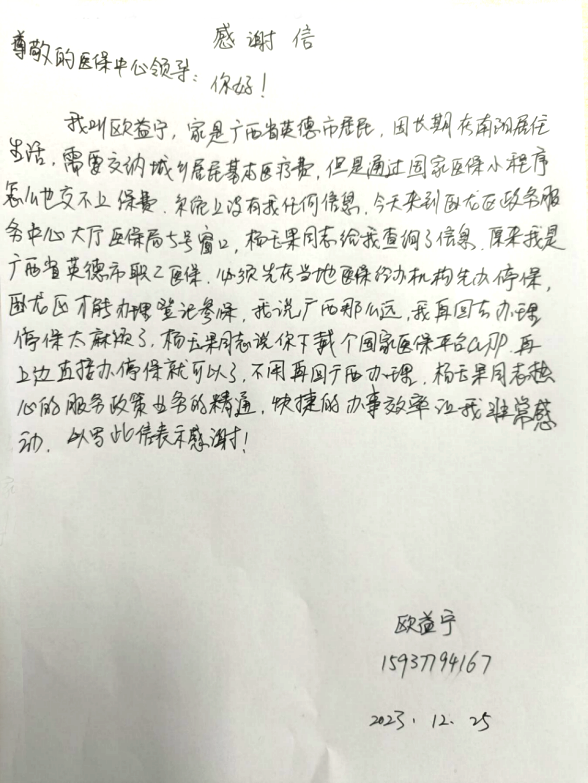 感谢信
尊敬的医保中心领导：
你好！
我叫欧益宁，家是广西省英德市居民，因长期在南阳居住
生活，需要交纳城乡居民基本医疗费，但是通过国家医保小程序
怎么也交不上保费．系统上没有我任何信息．今天来到卧龙区政务服
务中心大厅医保局5号窗口，杨玉果同志给我查询了信息．原来我是
广西省英德市职工医保．必须先在当地医保经办机构先办停保，
卧龙区才能办理登记参保，我说广西那么远，我再回去办理
停保太麻烦了．杨玉果同志说你下载个国家医保平台APP．再
上边直接办停保就可以了，不用再回广西办理．杨玉果同志热
心的服务政策业务的精通，快捷的办事效率让我非常感
动．以写此信表示感谢！
欧益宁
15937794167
2023．12．25